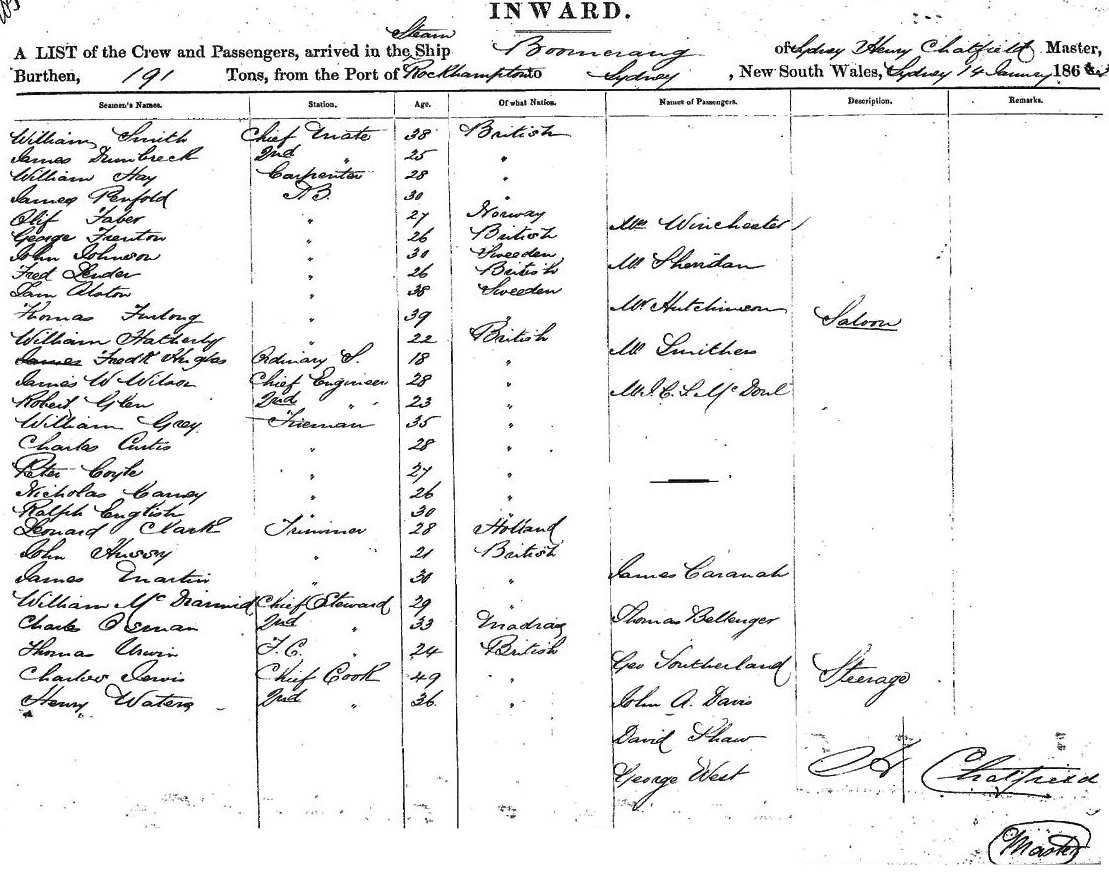 INWARD.
A LIST of the Crew and Passengers, arrived in the Steam Ship Boomerang of Sydney Henry Chatfield Master,
Burthen, 191 Tons, from the Port of Rockhampton to Sydney, New South Wales, Sydney 14 January 186
Seamen's Names. Station. Age. Of what Nation. Names of Passengers. Description. Remarks.
William Smith Chief Mate 38 British
James Dumbreck 2nd " 25 "
William Hay Carpenter 28 "
James Penfold AB. 30 "
Olif Faber " 27 Norway
Mrs Winchester
George Frenton " 26 British
John Johnson " 30 Sweeden
Fred " 26 British
Mr Sheridan
Sam Alston " 38 Sweeden
Thomas Furlong " 39 "
Mr Hutchinson Saloon
William Hatherly " 22 British
James Fredk Ordinary S. 18 "
Mr Smithers
James W Wilson Chief Engineer 28 "
Robert Glen 2nd " 23 "
Mr J. C. L. McDonl
William Grey Fireman 35 "
Charles Curtis " 28 "
Peter Coyle " 27 "
Nicholas Carney " 26 "
Ralph English " 30 "
Leonard Clark Trimmer 28 Holland
John Hussy " 21 British
James Martin " 30 "
James Cavanah
William McDiarmid Chief Steward 29 "
Charles Osman 2nd " 33 Madras
Thomas Bellenger
Thomas Urwin F.C. " 24 British
Geo Southerland Steerage
Charles Jervis Chief Cook 49 "
Henry Waters 2nd " 36 "
John A. Davis
David Shaw
George West
H Chatfield
Master